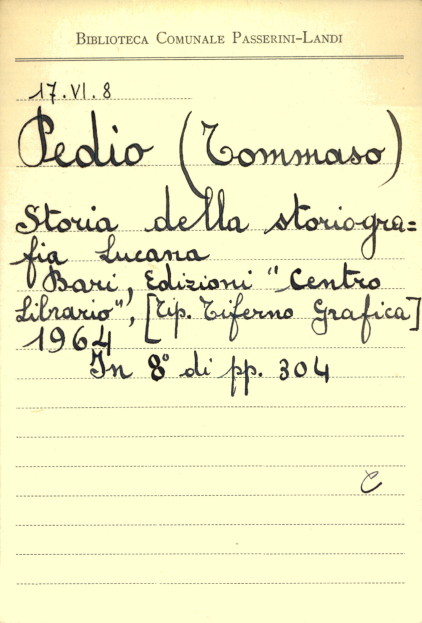 BIBLIOTECA COMUNALE PASSERINI-LANDI
17.VI.8
Pedio (Tommaso)
Storia della storiogra=
fia Lucana
Bari, Edizioni "Centro
Librario", [Tip. Tiferno Grafica]
1964
In 8° di pp. 304
C